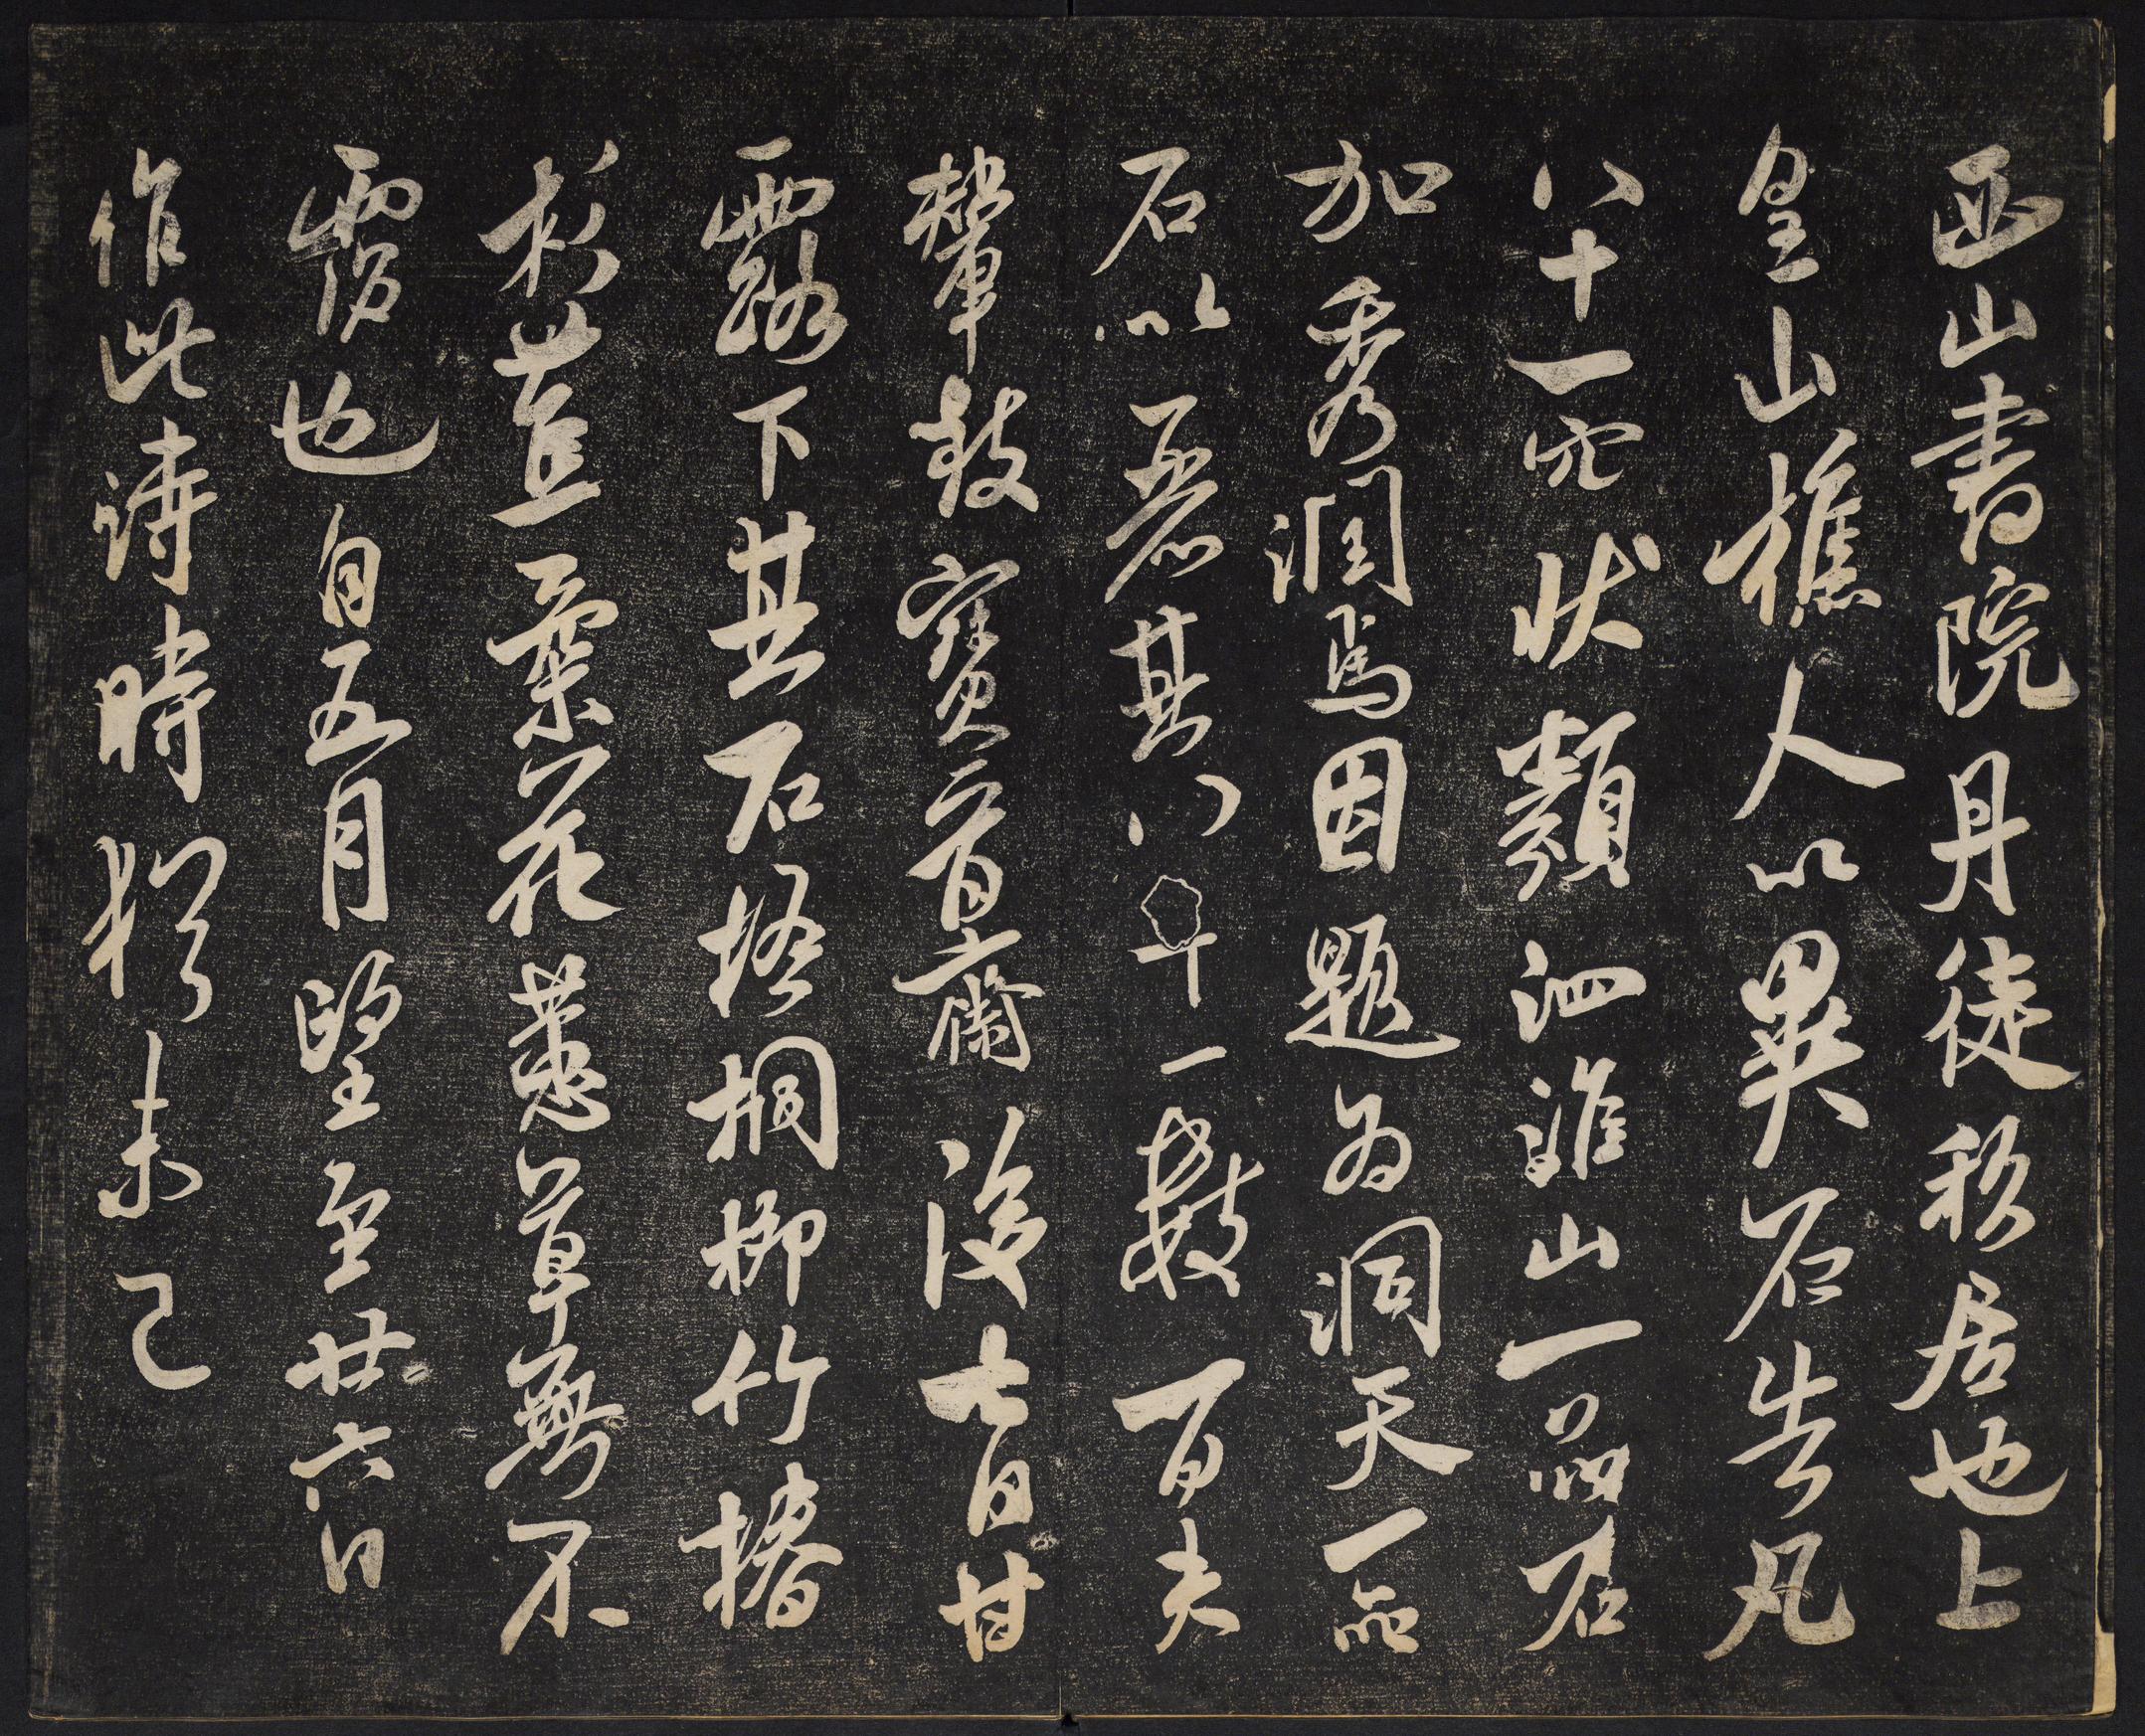 西山書院丹徒私居也上
皇山樵人以異石告凡
八十一穴狀類泗淮山一品石
加秀潤焉因題為洞天一品
石以丑石其八十一數百夫
輦致寶晉齋後七日甘
露下其石梧桐柳竹椿
杉蕉葉花萼草無不
霑也自五月望至廿六日
作此詩時猶未已